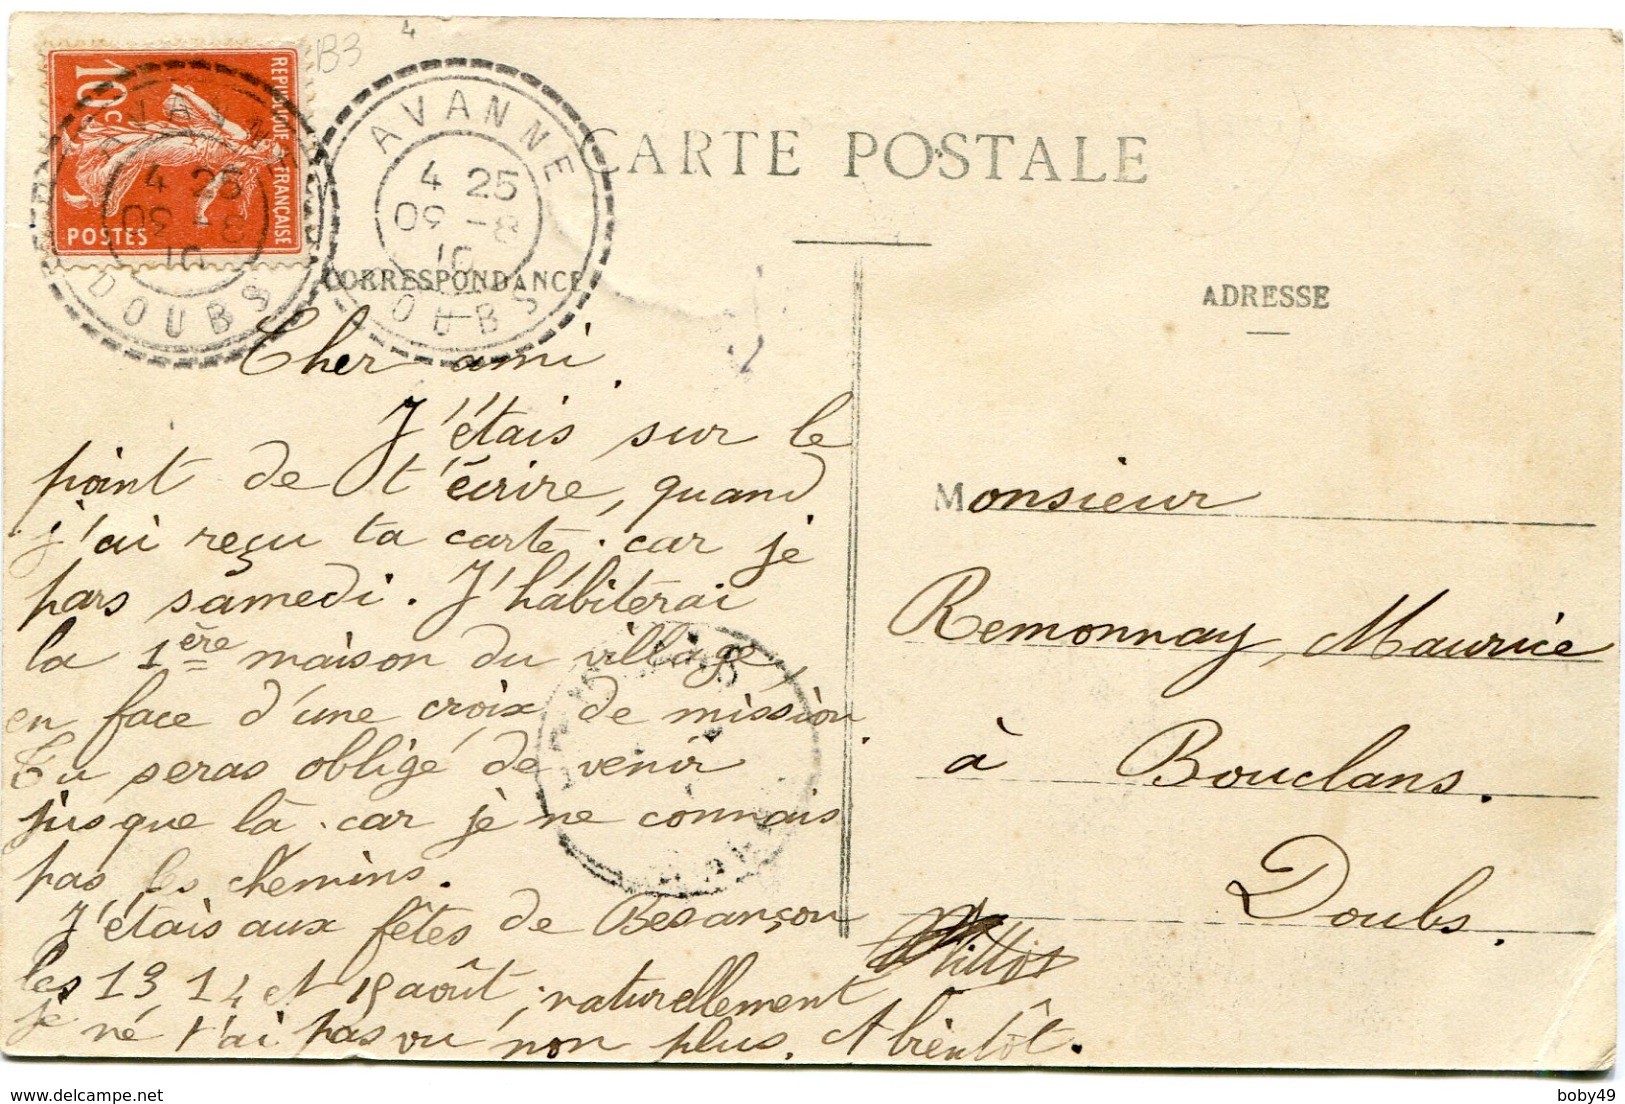 10c
REPUBLIQUE FRANÇAISE
POSTES
B3
4
AVANNE
4 25
09 -8
10
DOUBS
AVANNE
4 25
09 -8
10
DOUBS
CARTE POSTALE
CORRESPONDANCE
ADRESSE
Cher ami.
J'étais sur le
point de t'écrire, quand
j'ai reçu ta carte. car je
pars samedi. J'habiterai
la 1ère maison du village,
en face d'une croix de mission.
Tu seras obligé de venir
jusque là. car je ne connais
pas les chemins.
J'étais aux fêtes de Besançon
les 13 14 et 15 août, naturellement
je ne t'ai pas vu non plus. A bientôt.
Monsieur
Remonnay, Maurice
à Bouclans.
Doubs.
boby49